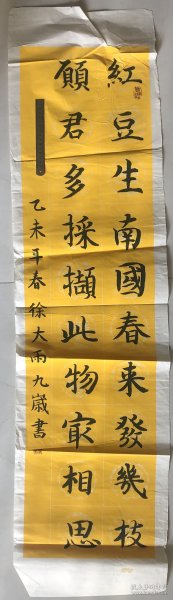 紅豆生南國春来發幾枝
願君多採擷此物冣相思
乙未年春徐大雨九歲書